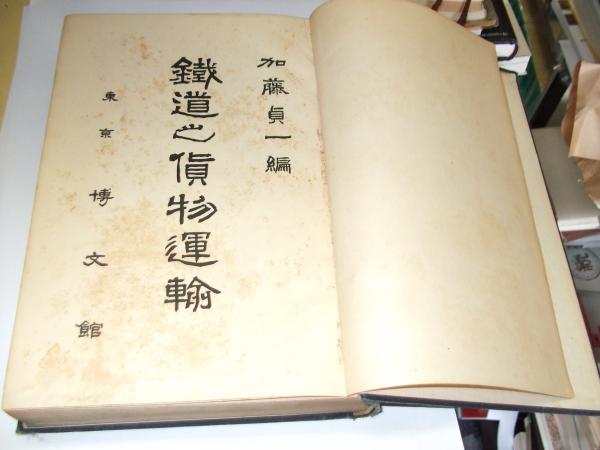 加藤貞一編
鐵道之貨物運輸
東京博文館